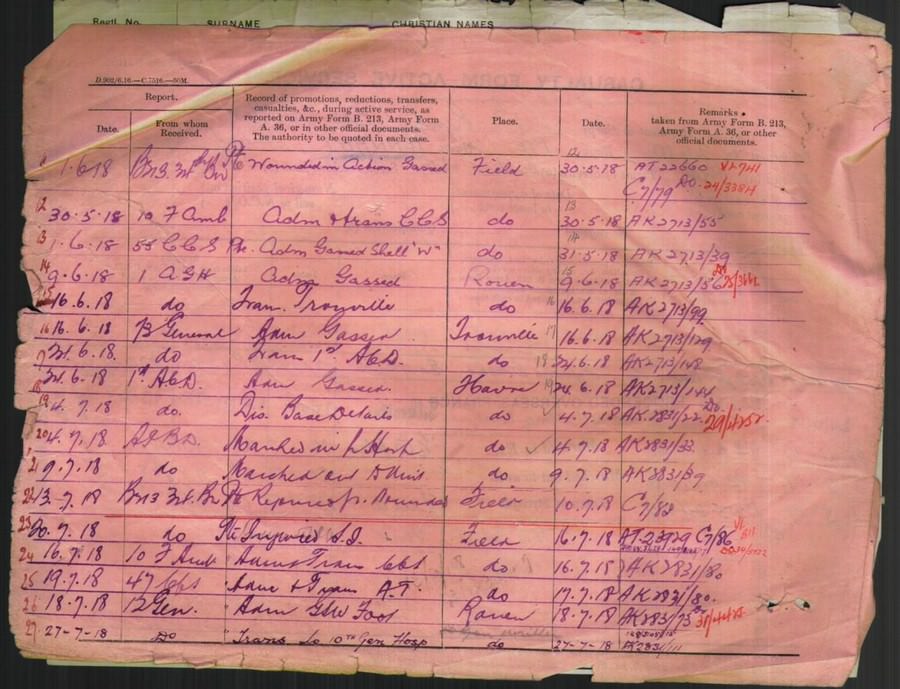 Regtl. No. SURNAME CHRISTIAN NAMES
D.902/6.16.—C.7516.—50M.
Report. Record of promotions, reductions, transfers, casualties, &c., during active service, as reported on Army Form B. 213, Army Form A. 36, or in other official documents. The authority to be quoted in each case. Place. Date. Remarks taken from Army Form B. 213, Army Form A. 36, or other official documents.
Date. From whom Received.
1.6.18 Wounded in Action Gassed Field 30.5.18 AT 22660
C7/79 DO. 24/33844
12 30.5.18 10 F Amb Adm & trans CCS do 30.5.18 AK2713/55
13 1.6.18 55 CCS Adm Gassed Shell "W" do 31.5.18 AK2713/39
14 9.6.18 1 AGH Adm Gassed Rouen 9.6.18 AK2713/56
15 16.6.18 do Tran. Trouville do 16 16.6.18 AK2713/99
16 16.6.18 Adm Gassed Trouville 17 16.6.18 AK2713/129
24.6.18. do Trans 1st A.C.D. do 18 24.6.18 AK2713/148
18 24.6.18 1st A.C.D. Adm Gassed. Havre 19 24.6.18 AK2713/144
19 4.7.18 do. Dis. Base Details do 4.7.18 AK2831/22
20 4.7.18 AIBD. Marched in fr Hosp do 4.7.18 AK2831/33.
21 9.7.18 do Marched out to Unit do 9.7.18 AK2831/39
22 13.7.18 Rejoined fr. Wounded Field 10.7.18 C7/82
23 20.7.18 do Injured S.I. Field 16.7.18 AT.23929 C7/86
24 16.7.18 10 F Amb Adm & Trans CCS do 16.7.18 AK2831/80
25 19.7.18 47 CCS Adm & Trans A.T. do 17.7.18 AK2831/80.
26 18.7.18 12 Gen. Adm GSW Foot Rouen 18.7.18 AK2831/75
27 27-7-18 Do Trans to 10th Gen Hosp do 27-7-18 AK2831/111